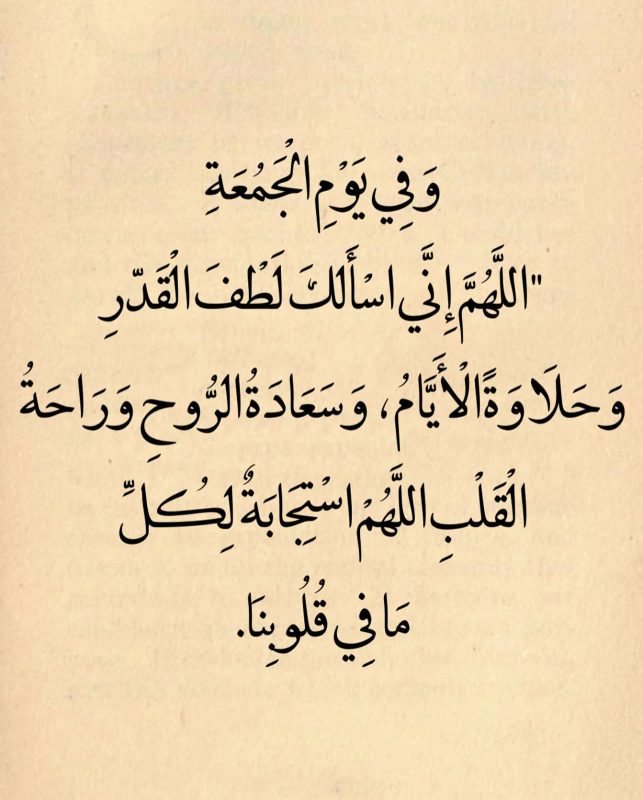 وَفِي يَوْمِ الْجَمُعَةِ
"اللَّهُمَّ إِنَّي اسْأَلَكَ لَطْفَ الْقَدّرِ
وَحَلَاوَةًالْأَيَّامُ، وَسَعَادَةُ الرُّوحِ وَرَاحَةُ
الْقَلْبِ اللَّهُمْ اسْتِجَابَةٌ لِكُلِّ
مَا فِي قُلُوبِنَا.